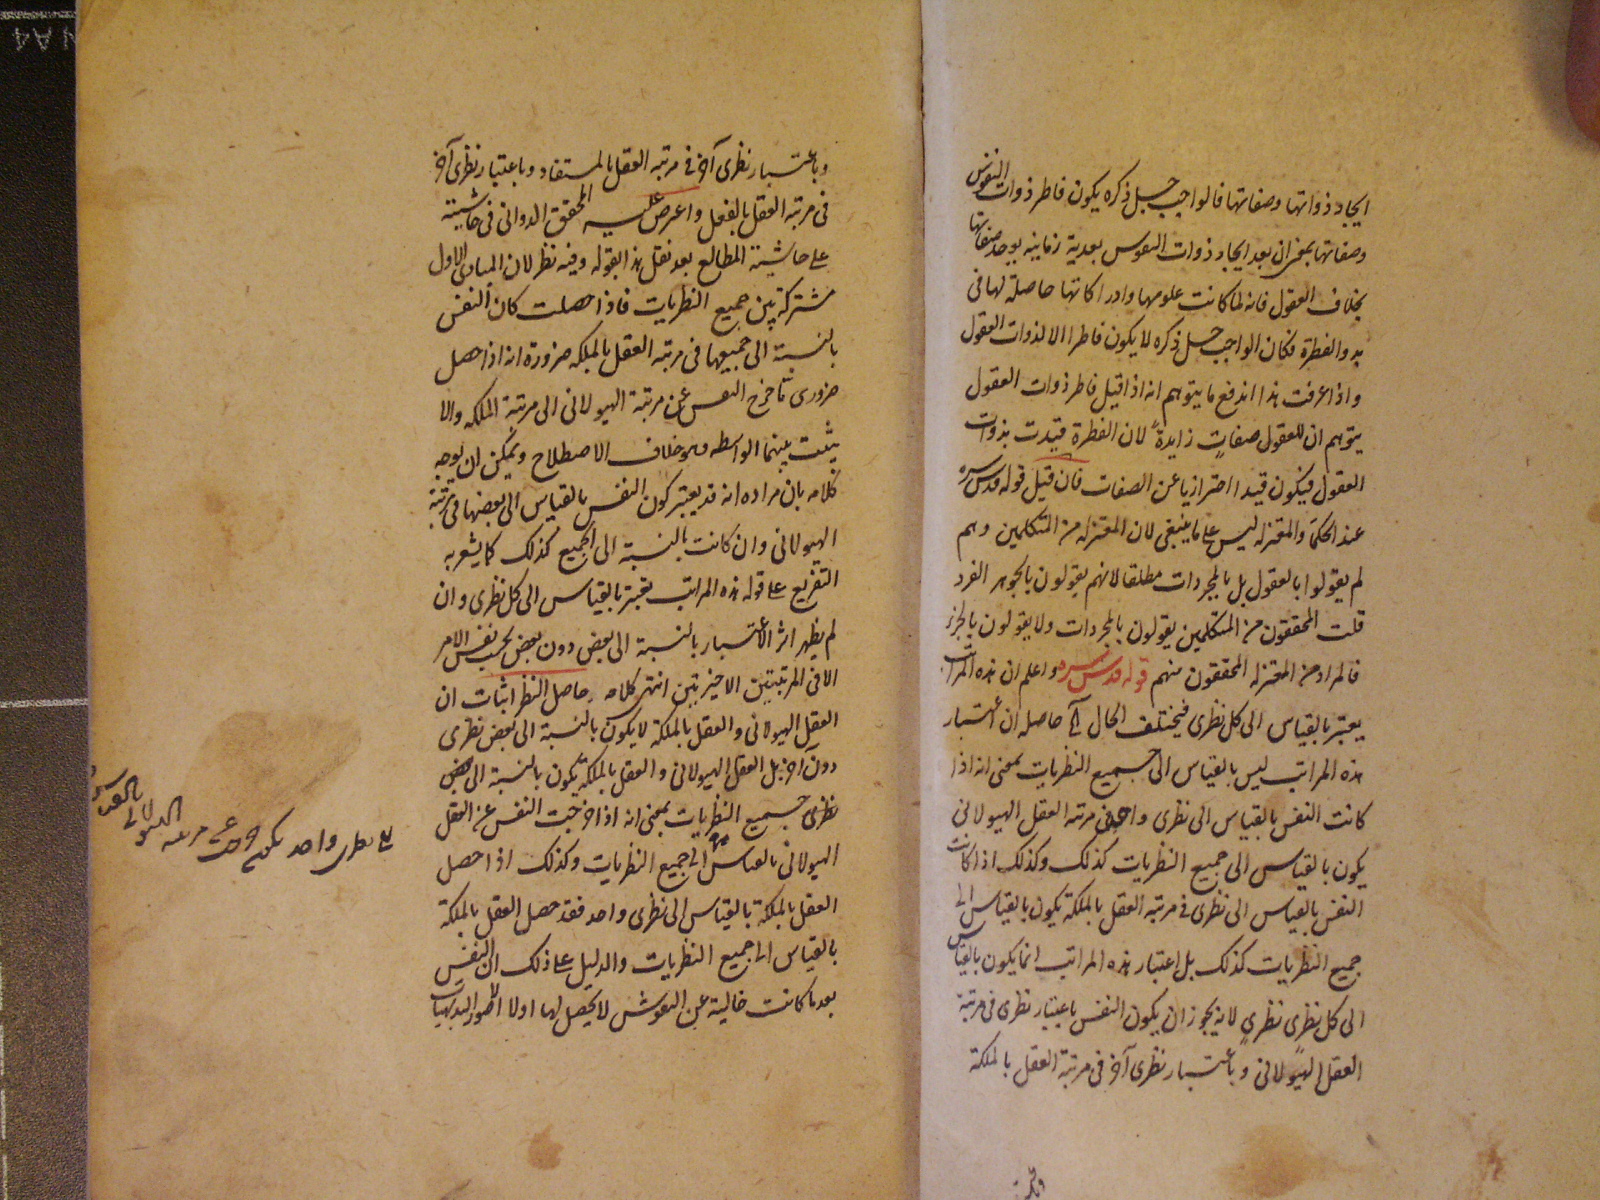 ايجاد ذواتها وصفاتها فالواجب جل ذكره يكون فاطر ذوات النفوس
وصفاتها بمعنى ان بعد ايجاد ذوات النفوس بعدية زمانية يوجد صفاتها
بخلاف العقول فانه لما كانت علومها وادراكاتها حاصلة لها فى
بدو الفطرة فكان الواجب جل ذكره لا يكون فاطرا الا لذوات العقول
واذا عرفت هذا اندفع ما يتوهم انه اذا قيل فاطر ذوات العقول
يتوهم ان للعقول صفات زايدة لان الفطرة قيدت بذوات
العقول فيكون قيدا احترازيا عن الصفات فان قيل قوله قدس سره
عند الحكماء والمعتزله ليس على ما ينبغى لان المعتزله من المتكلمين وهم
لم يقولوا بالعقول بل بالمجردات مطلقا لانهم يقولون بالجوهر الفرد
قلت المحققون من المتكلمين يقولون بالمجردات ولا يقولون بالجزء
فالمراد من المعتزله المحققون منهم قوله قدس سره واعلم ان هذه المراتب
يعتبر بالقياس الى كل نظرى فيختلف الحال آه حاصله ان اعتبار
هذه المراتب ليس بالقياس الى جميع النظريات بمعنى انه اذا
كانت النفس بالقياس الى نظرى واحد فى مرتبه العقل الهيولانى
يكون بالقياس الى جميع النظريات كذلك وكذلك اذا كانت
النفس بالقياس الى نظرى فى مرتبه العقل بالملكة يكون بالقياس الى
جميع النظريات كذلك بل اعتبار هذه المراتب انما يكون بالقياس
الى كل نظرى نظرى لانه يجوز ان يكون النفس باعتبار نظرى فى مرتبة
العقل الهيولانى وباعتبار نظرى آخر فى مرتبة العقل بالملكة
وباعتبار نظرى آخر فى مرتبه العقل بالمستفاد وباعتبار نظرى آخر
فى مرتبه العقل بالفعل واعرض عليه المحقق الدوانى فى حاشيته
على حاشية المطالع بعد نقل هذا بقوله وفيه نظر لان المبادى الاول
مشتركة بين جميع النظريات فاذا حصلت كان النفس
بالنسبة الى جميعها فى مرتبه العقل بالملكه ضرورة انه اذا حصل
ضرورى ما خرج النفس عن مرتبة الهيولانى الى مرتبة الملكه والا
يثبت بينهما الواسطه وهو خلاف الاصطلاح ويمكن ان يوجه
كلامه بان مراده انه قد يعتبر كون النفس بالقياس الى بعضها فى مرتبة
الهيولانى وان كانت بالنسبة الى الجميع كذلك كما يشعر به
التفريع على قوله هذه المراتب يعتبر بالقياس الى كل نظرى وان
لم يظهر اثر الاعتبار بالنسبة الى بعض دون بعض بحسب نفس الامر
الا فى المرتبتين الاخيرتين انتهى كلامه حاصل النظر اثبات ان
العقل الهيولانى والعقل بالملكة لا يكون بالنسبة الى بعض نظرى
دون آخر بل العقل الهيولانى والعقل بالملكة يكون بالنسبة الى بعض
نظرى جميع النظريات بمعنى انه اذا خرجت النفس عن العقل
الهيولانى بالقياس الى جميع النظريات وكذلك اذا حصل
العقل بالملكة بالقياس الى نظرى واحد فقد حصل العقل بالملكة
بالقياس الى جميع النظريات والدليل على ذلك ان النفس
بعد ما كانت خالية عن النقوش لا يحصل لها اولا الا صور البديهيات
نظرى واحد يكون خرجت عن مرتبه الهيولانى بالقياس